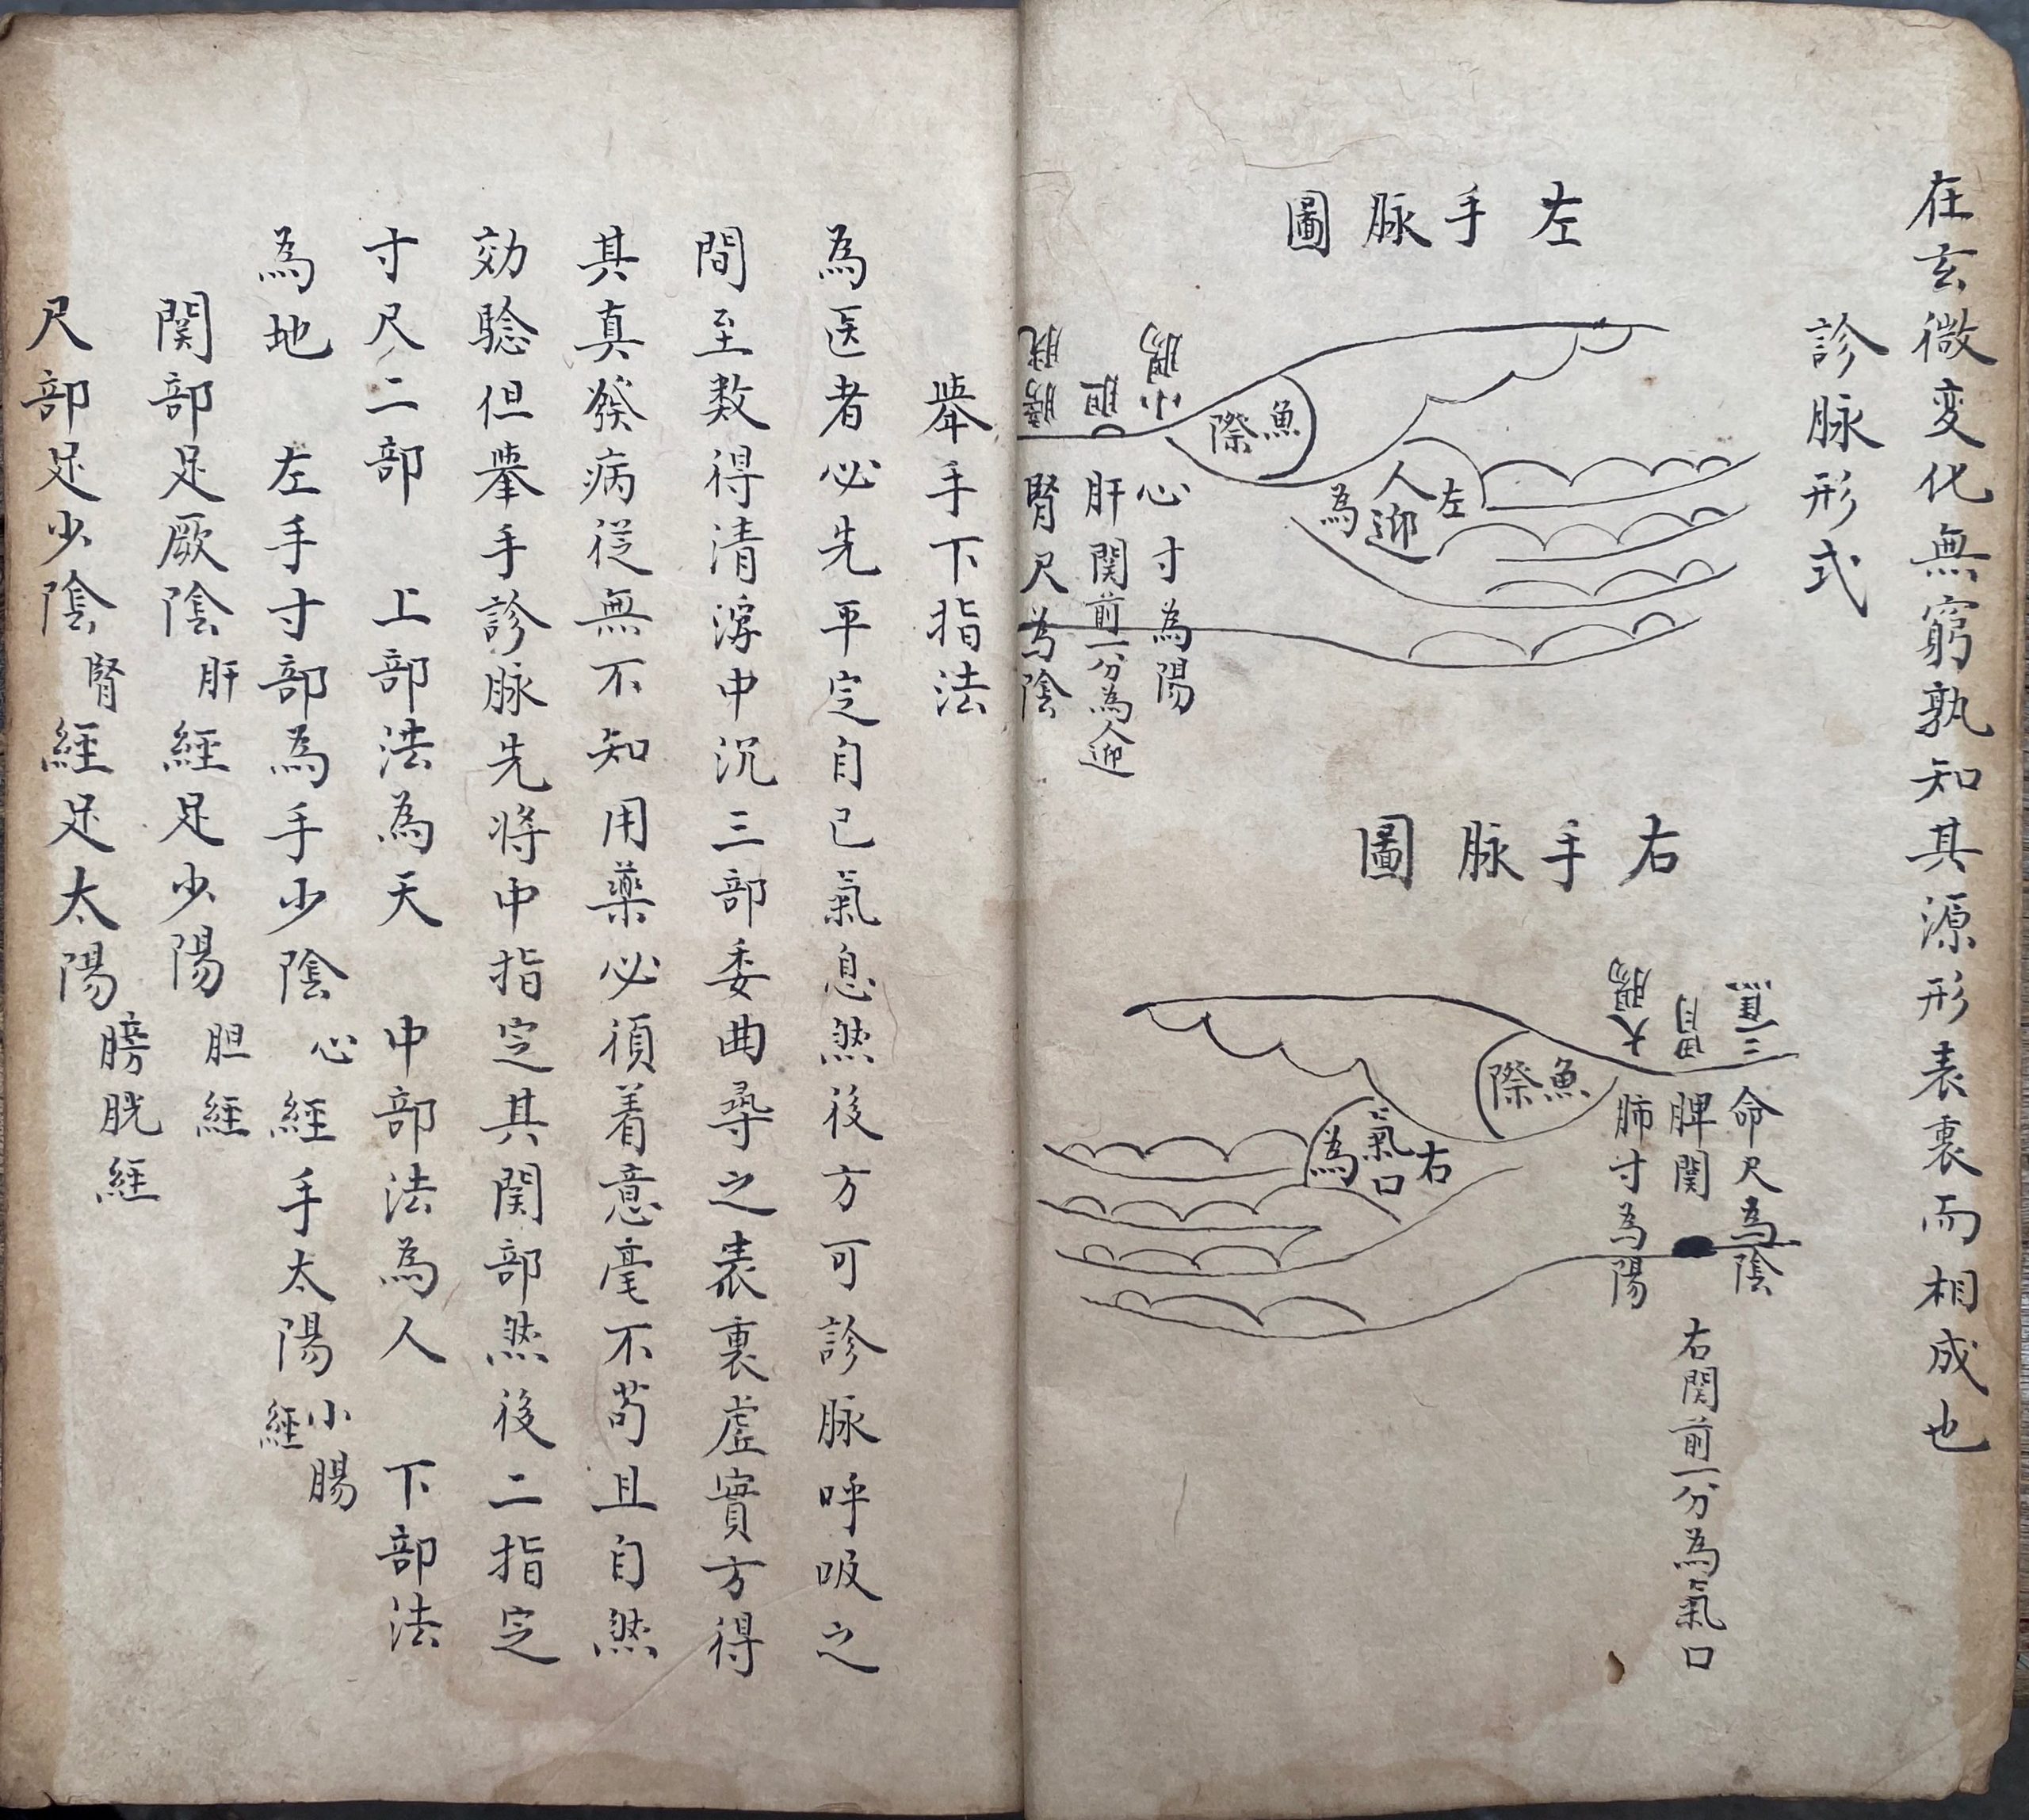 在玄微変化無窮孰知其源形表裏而相成也
診脉形式
左手脉圖
魚際
左
人迎
為
小腸
胆
膀胱
心寸為陽
肝関前一分為人迎
腎尺為陰
右手脉圖
三焦
胃
大腸
魚際
右
氣口
為
命尺為陰
脾関
肺寸為陽
右関前一分為氣口
舉手下指法
為医者必先平定自己氣息然後方可診脉呼吸之
間至数得清浮中沉三部委曲尋之表裏虛實方得
其真發病從無不知用藥必須着意毫不苟且自然
効騐但舉手診脉先将中指定其関部然後二指定
寸尺二部 上部法為天 中部法為人 下部法
為地 左手寸部為手少陰心經手太陽小腸經
関部足厥陰肝經足少陽胆經
尺部足少陰腎經足太陽膀胱經